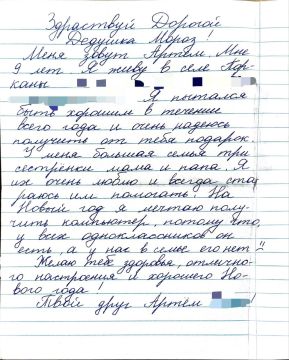 Здраствуй Дорогой
Дедушка Мороз!
Меня зовут Артём. Мне
9 лет. Я живу в селе Тар-
ханы
Я пытался
быть хорошим в течении
всего года и очень надеюсь
получить от тебя подарок.
У меня большая семья три
сестрёнки мама и папа. Я
их очень люблю и всегда ста
раюсь им помогать! На
Новый год я мечтаю полу-
чить компьютер, потому что,
у всех одноклассников он
есть, а у нас в семье его нет
Желаю тебе здоровья, отлично-
го настроения и хорошего Но-
вого года!
Твой друг Артём !